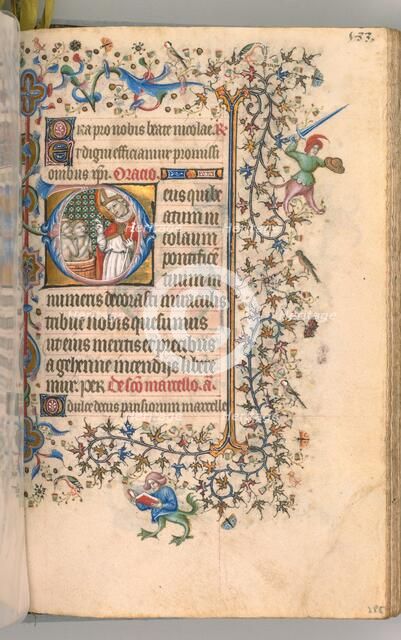 133
Ora pro nobis beate nicolae. R
Et digni efficiamur promissi
onibus xpi. Oratio.
Deus qui be
atum ni
colaum
pontificē
tuum in
numeris decorasti miraculis
tribue nobis quesumus
ut eius meritis et precibus
a gehenne incendiis libere
mur. per De sc̄o marcello. a.
Dulce decus parisiorum marcelle
heritage
Heritage
heritage
Heritage